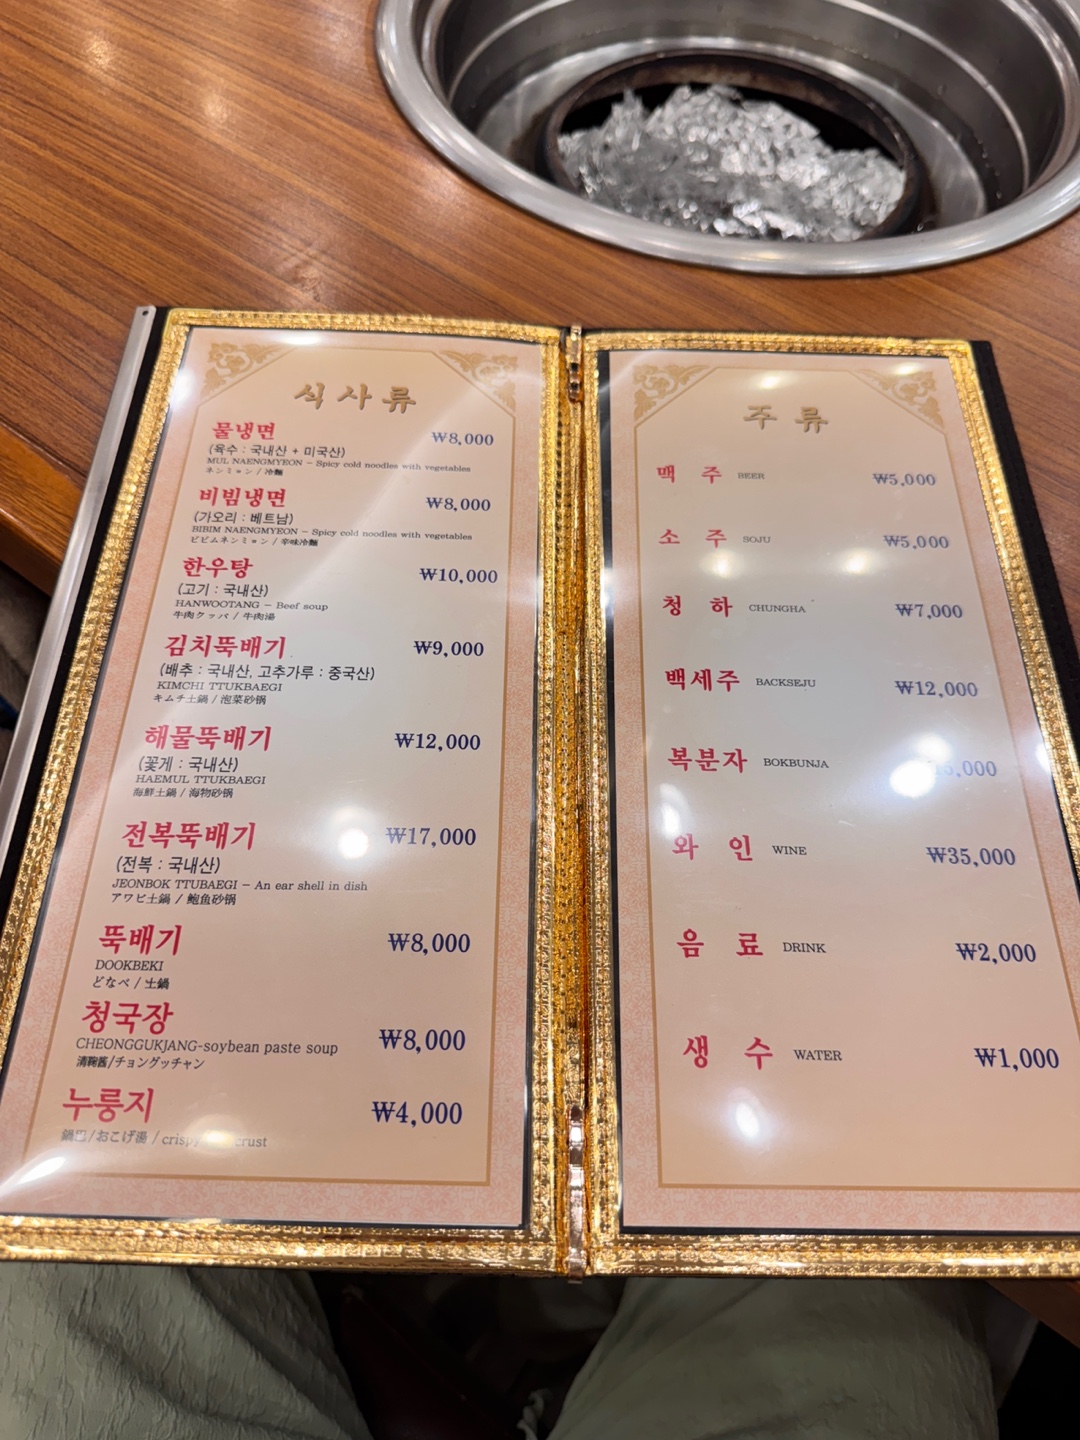 식사류
물냉면 ₩8,000
(육수 : 국내산 + 미국산)
MUL NAENGMYEON - Spicy cold noodles with vegetables
ネンミョン / 冷麵
비빔냉면 ₩8,000
(가오리 : 베트남)
BIBIM NAENGMYEON - Spicy cold noodles with vegetables
ビビムネンミョン / 辛味冷麵
한우탕 ₩10,000
(고기 : 국내산)
HANWOOTANG - Beef soup
牛肉クッパ / 牛肉湯
김치뚝배기 ₩9,000
(배추 : 국내산, 고추가루 : 중국산)
KIMCHI TTUKBAEGI
キムチ土鍋 / 泡菜砂锅
해물뚝배기 ₩12,000
(꽃게 : 국내산)
HAEMUL TTUKBAEGI
海鮮土鍋 / 海物砂锅
전복뚝배기 ₩17,000
(전복 : 국내산)
JEONBOK TTUBAEGI - An ear shell in dish
アワビ土鍋 / 鲍鱼砂锅
뚝배기 ₩8,000
DOOKBEKI
どなべ / 土鍋
청국장 ₩8,000
CHEONGGUKJANG-soybean paste soup
清麴酱/チョングッチャン
누룽지 ₩4,000
鍋巴/おこげ湯 / crispy crust
주류
맥 주 BEER ₩5,000
소 주 SOJU ₩5,000
청 하 CHUNGHA ₩7,000
백세주 BACKSEJU ₩12,000
복분자 BOKBUNJA
와 인 WINE ₩35,000
음 료 DRINK ₩2,000
생 수 WATER ₩1,000